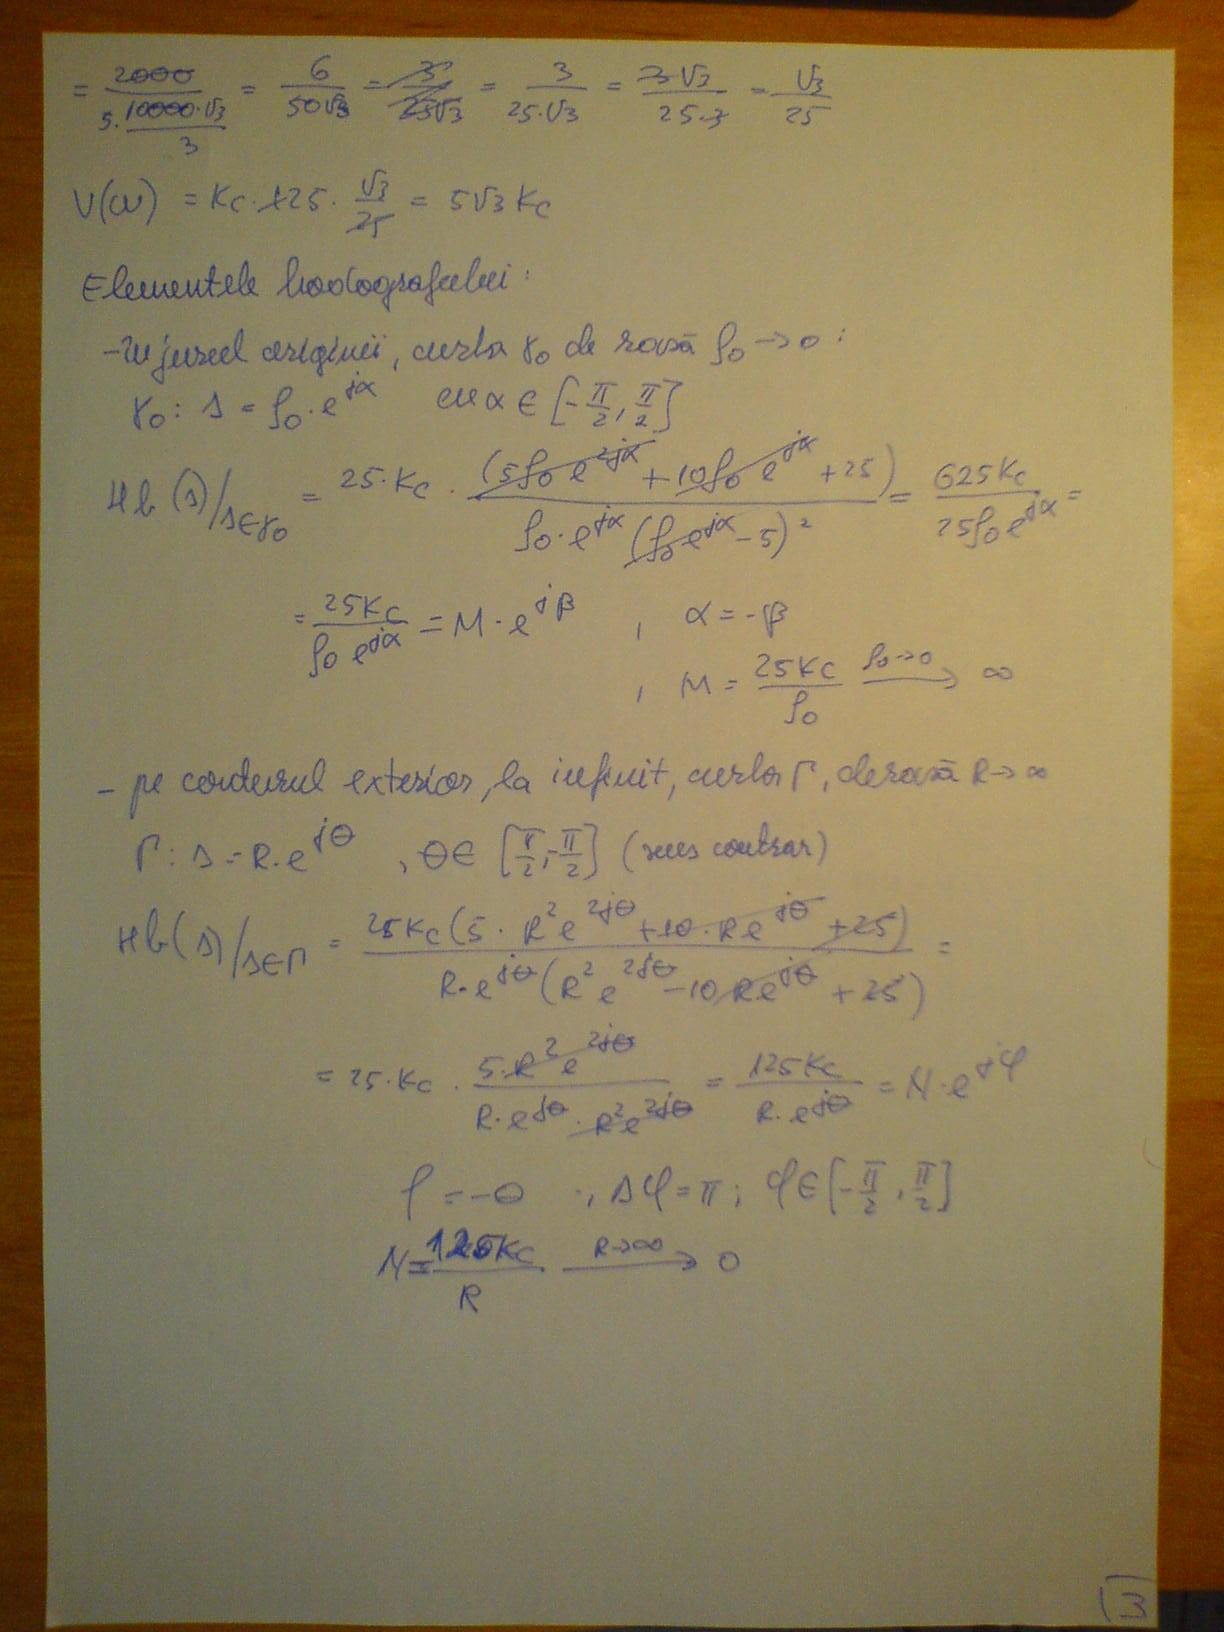 = 2000 / (5 · 10000·√3 / 3) = 6 / 50√3 = 3 / 25√3 = 3 / 25·√3 = 3√3 / 25·3 = √3 / 25
V(ω) = Kc · 125 · √3 / 25 = 5√3 Kc
Elementele hodografului:
- În jurul originii, curba γ0 de rază ρ0 → 0 :
γ0 : s = ρ0 · e^{jα} cu α ∈ [-π/2, π/2]
Hb(s)/s∈γ0 = 25·Kc · (5ρ0 e^{2jα} + 10ρ0 e^{jα} + 25) / ρ0·e^{jα} (ρ0e^{jα} - 5)² = 625Kc / 25ρ0 e^{jα} =
= 25Kc / ρ0 e^{jα} = M · e^{jβ} , α = -β
, M = 25Kc / ρ0 —ρ0→0→ ∞
- pe conturul exterior, la infinit, curba Γ, de rază R → ∞
Γ : s = R·e^{jθ} , θ ∈ [π/2, -π/2] (sens contrar)
Hb(s)/s∈Γ = 25Kc (5 · R² e^{2jθ} + 10·Re^{jθ} + 25) / R·e^{jθ} (R² e^{2jθ} - 10 Re^{jθ} + 25) =
= 25·Kc · 5·R² e^{2jθ} / R·e^{jθ} · R²e^{2jθ} = 125Kc / R·e^{jθ} = N·e^{jφ}
φ = -θ ; Δφ = π ; φ ∈ [-π/2, π/2]
N = 125Kc / R —R→∞→ 0
3